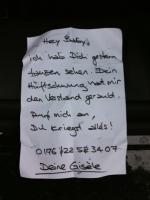 Hey Baby's
ich hab Dich gestern
tanzen sehen. Dein
Hüftschwung hat mir
den Verstand geraubt.
Ruf mich an,
Du kriegst alles!
0176/22 52 34 07
Deine Gisèle